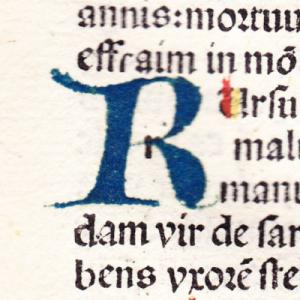 annis: mortuu
effraim in mō
RUrsu
mal
manu
dam vir de sar
bens vxorē ste